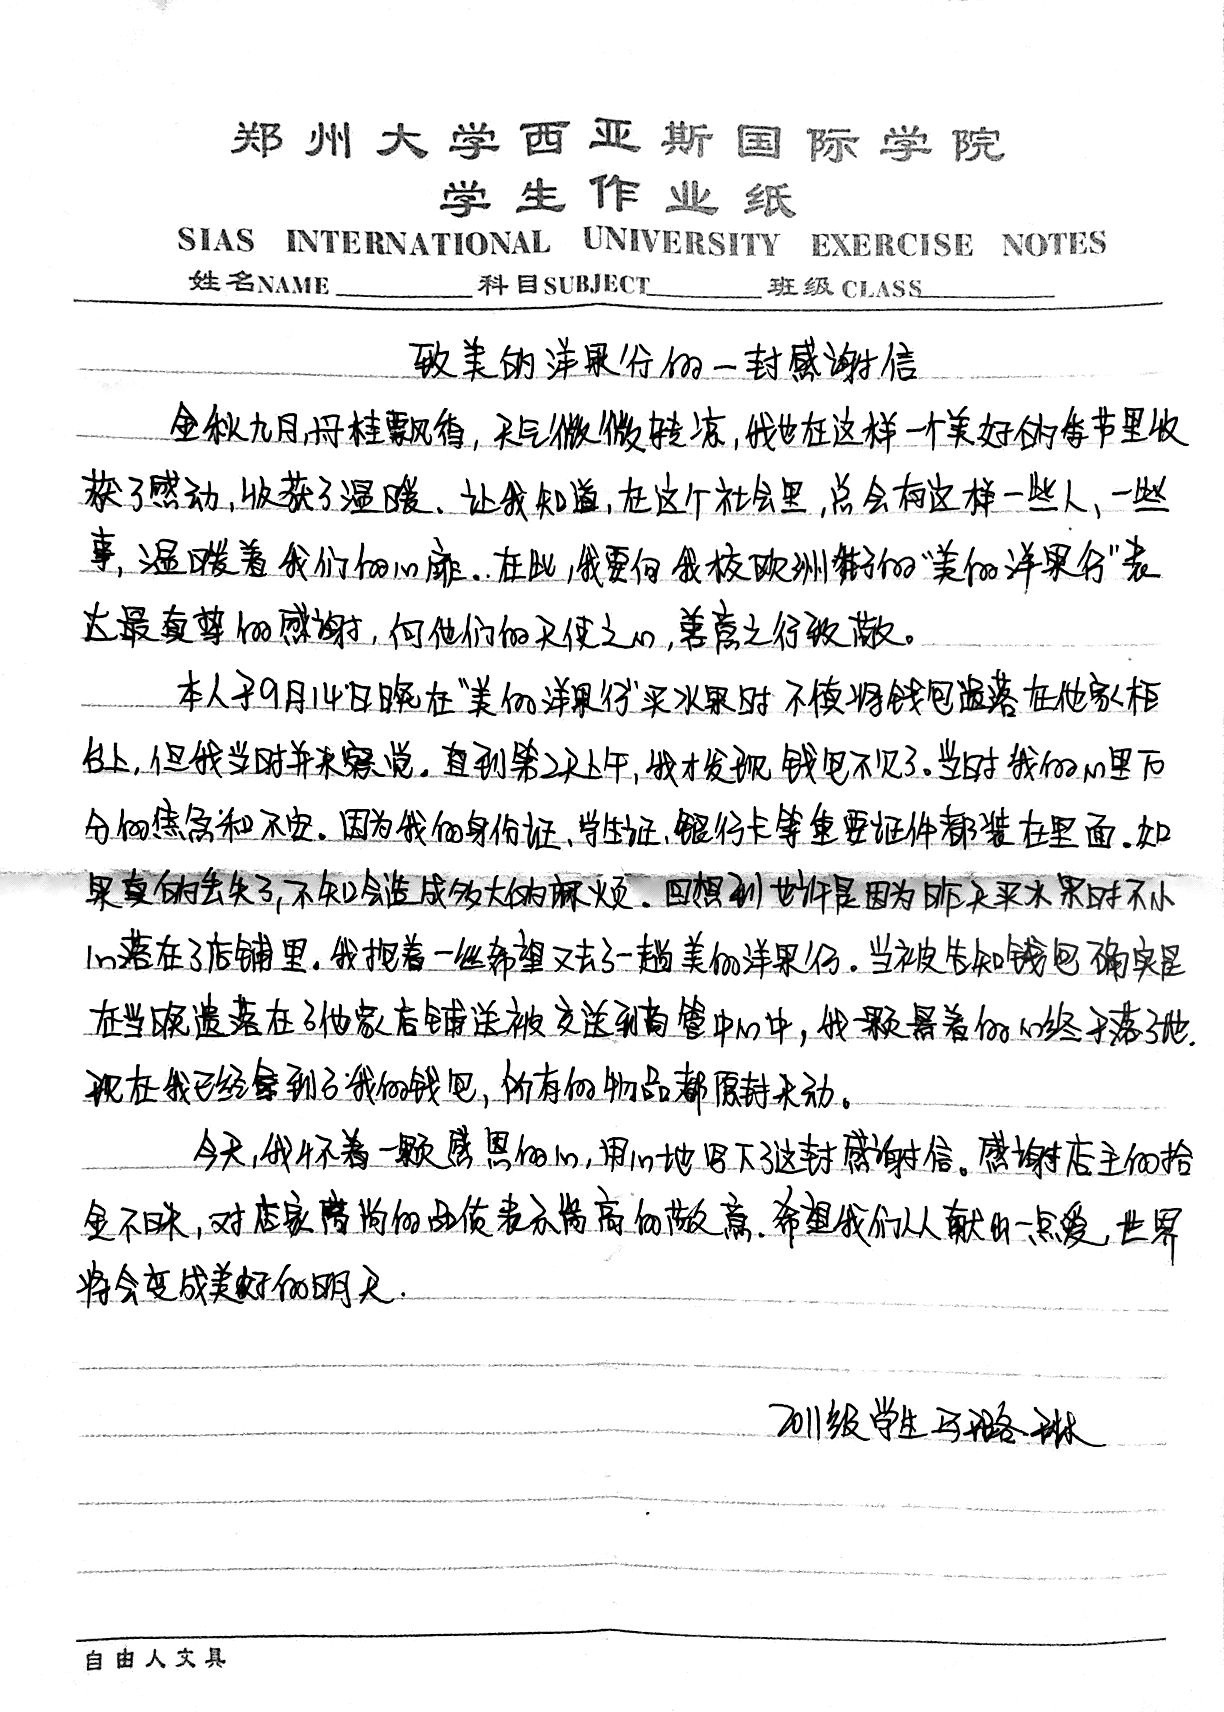 郑州大学西亚斯国际学院
学生作业纸
SIAS INTERNATIONAL UNIVERSITY EXERCISE NOTES
姓名NAME 科目SUBJECT 班级CLASS
致美的洋果行的一封感谢信
金秋九月,丹桂飘香,天气微微转凉,我也在这样一个美好的季节里收
获了感动,收获了温暖.让我知道,在这个社会里,总会有这样一些人,一些
事,温暖着我们的心扉.在此,我要向我校欧洲街的“美的洋果行”表
达最真挚的感谢,向他们的天使之心,善意之行致敬。
本人于9月14日晚在“美的洋果行”买水果时不慎将钱包遗落在他家柜
台上,但我当时并未察觉.直到第2天上午,我才发现钱包不见了.当时我的心里万
分的焦急和不安.因为我的身份证、学生证、银行卡等重要证件都装在里面.如
果真的丢失了,不知会造成多大的麻烦.回想到也许是因为昨天买水果时不小
心落在了店铺里.我抱着一丝希望又去了一趟美的洋果行.当被告知钱包确实是
在当晚遗落在了他家店铺送被交送到商管中心中,我一颗悬着的心终于落了地.
现在我已经拿到了我的钱包,所有的物品都原封未动。
今天,我怀着一颗感恩的心,用心地写下了这封感谢信。感谢店主的拾
金不昧,对店家高尚的品质表示崇高的敬意.希望我们人人献出一点爱,世界
将会变成美好的明天.
2011级学生马璐琳
自由人文具